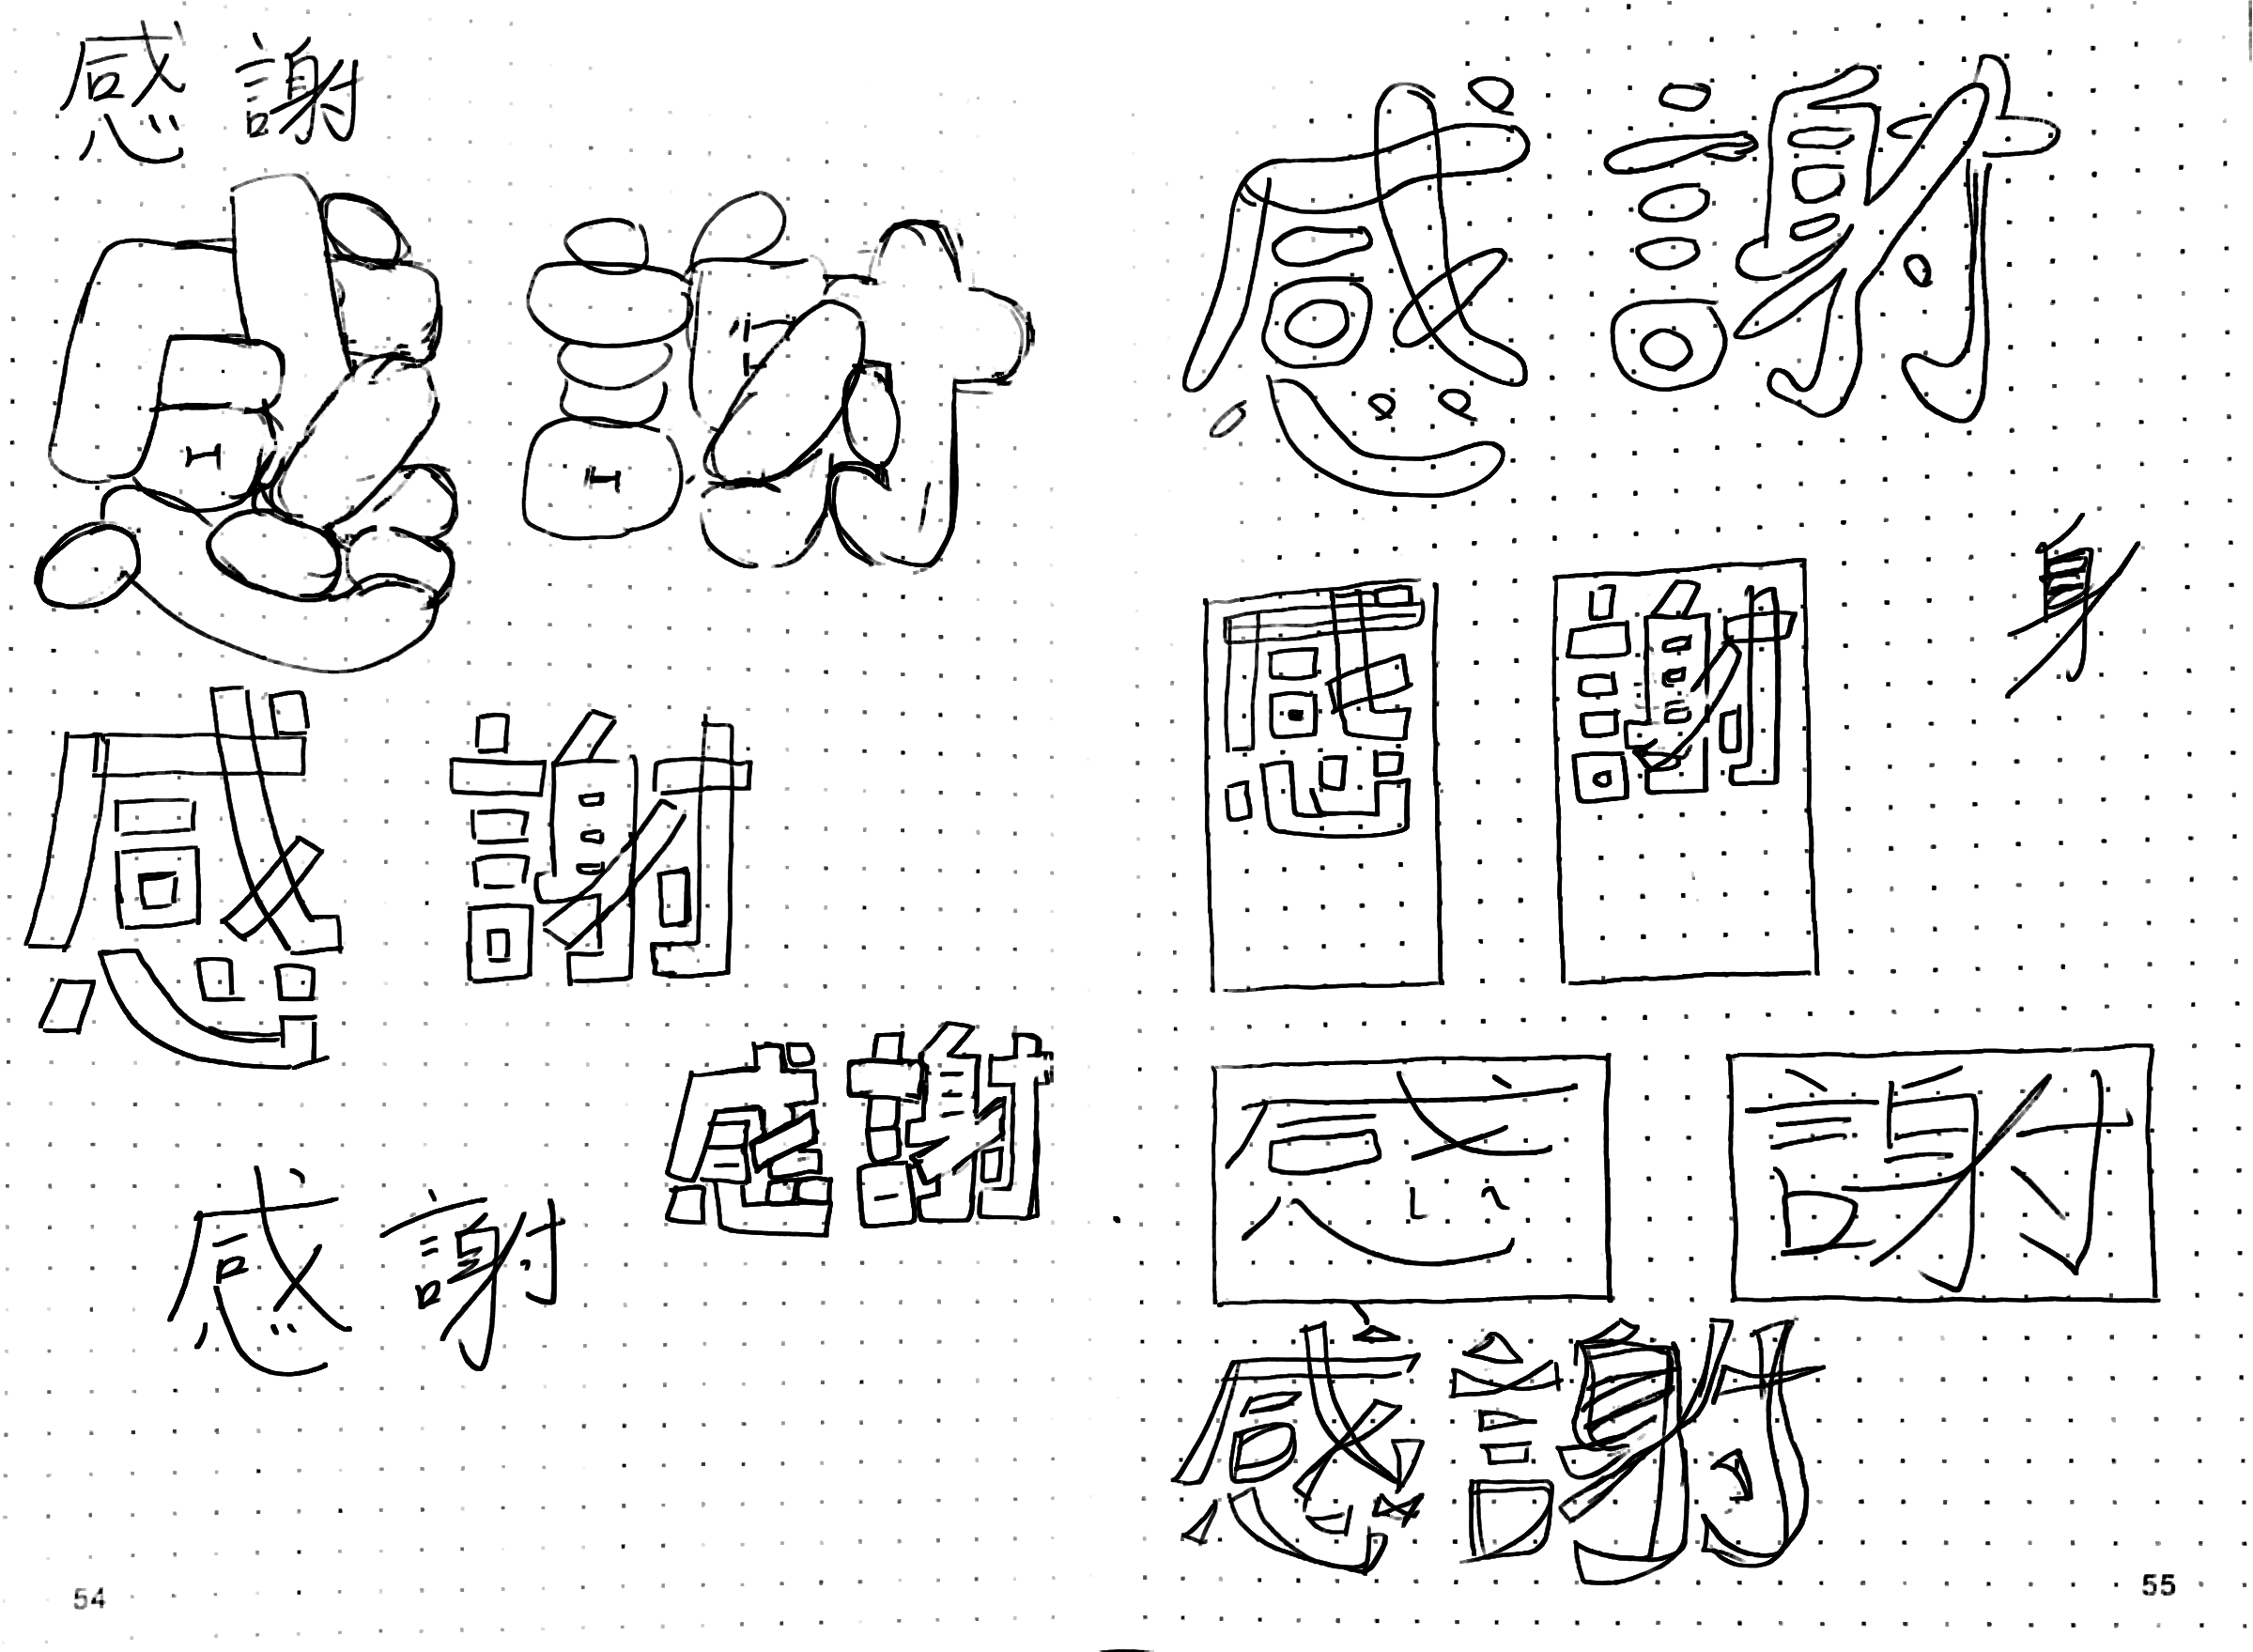 感 謝
感 謝
感 謝
感 謝
感 謝
54
感 謝
身
感 謝
感 謝
感 謝
55